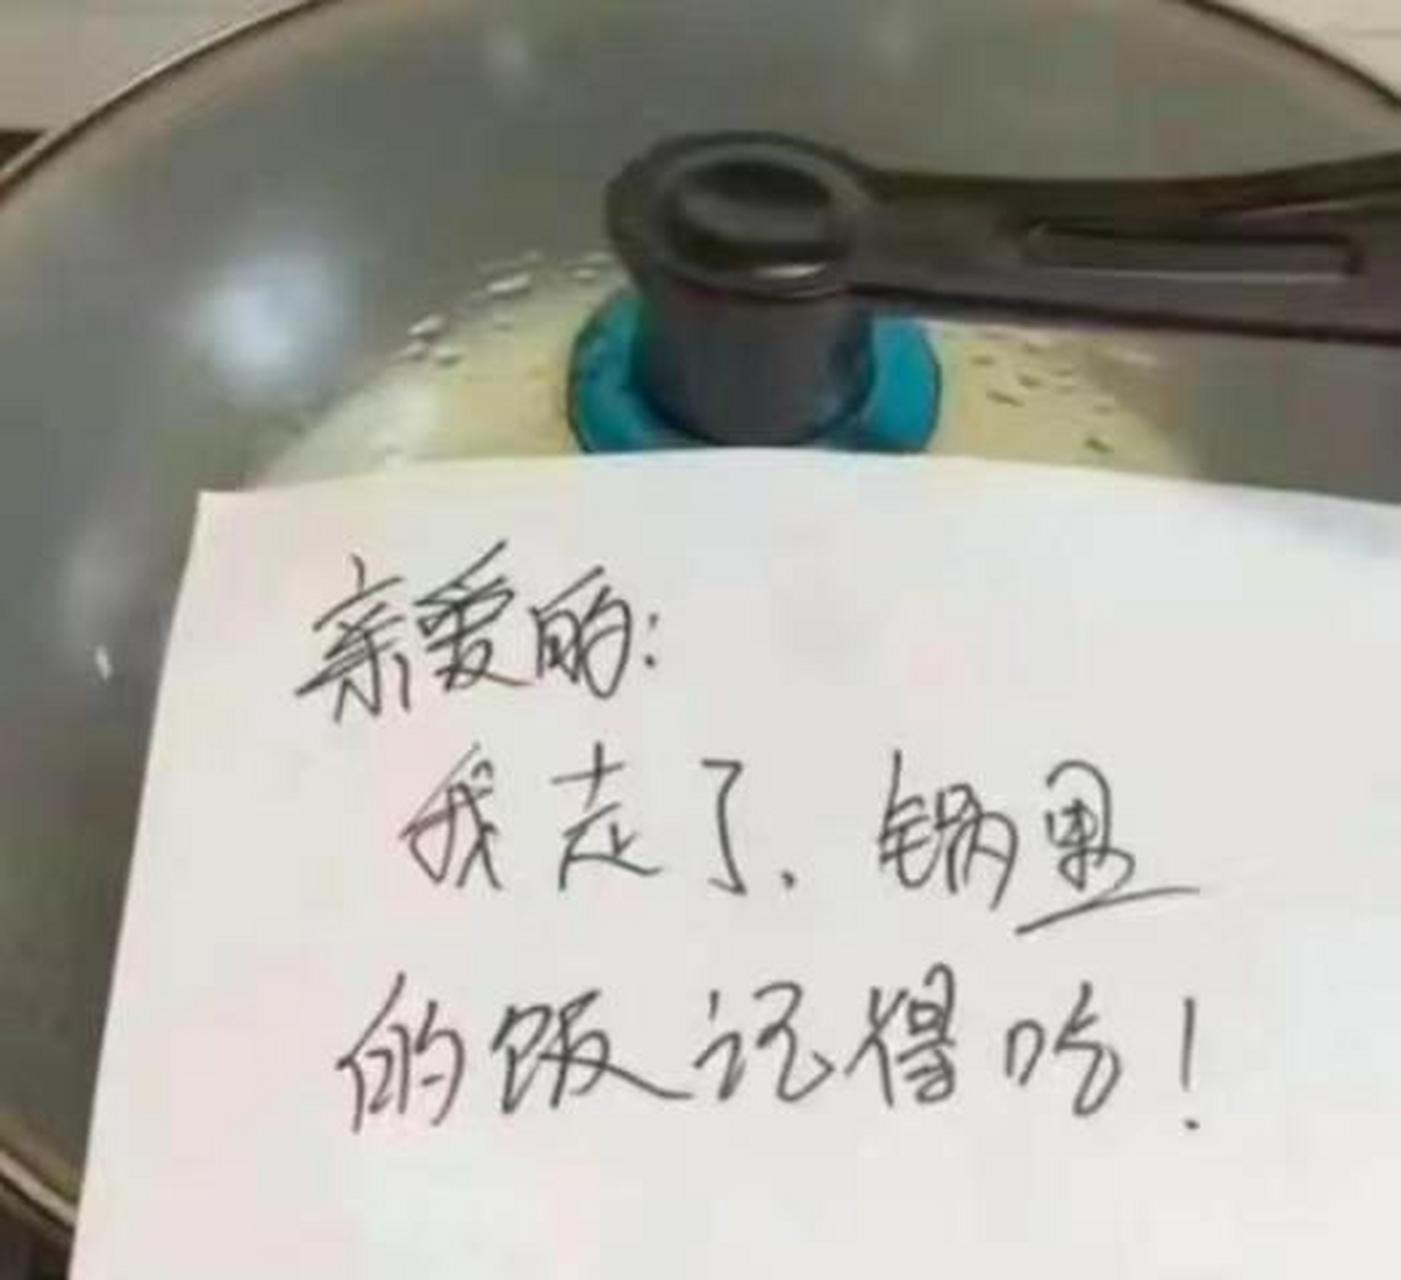 亲爱的:
我走了.锅里
的饭记得吃!